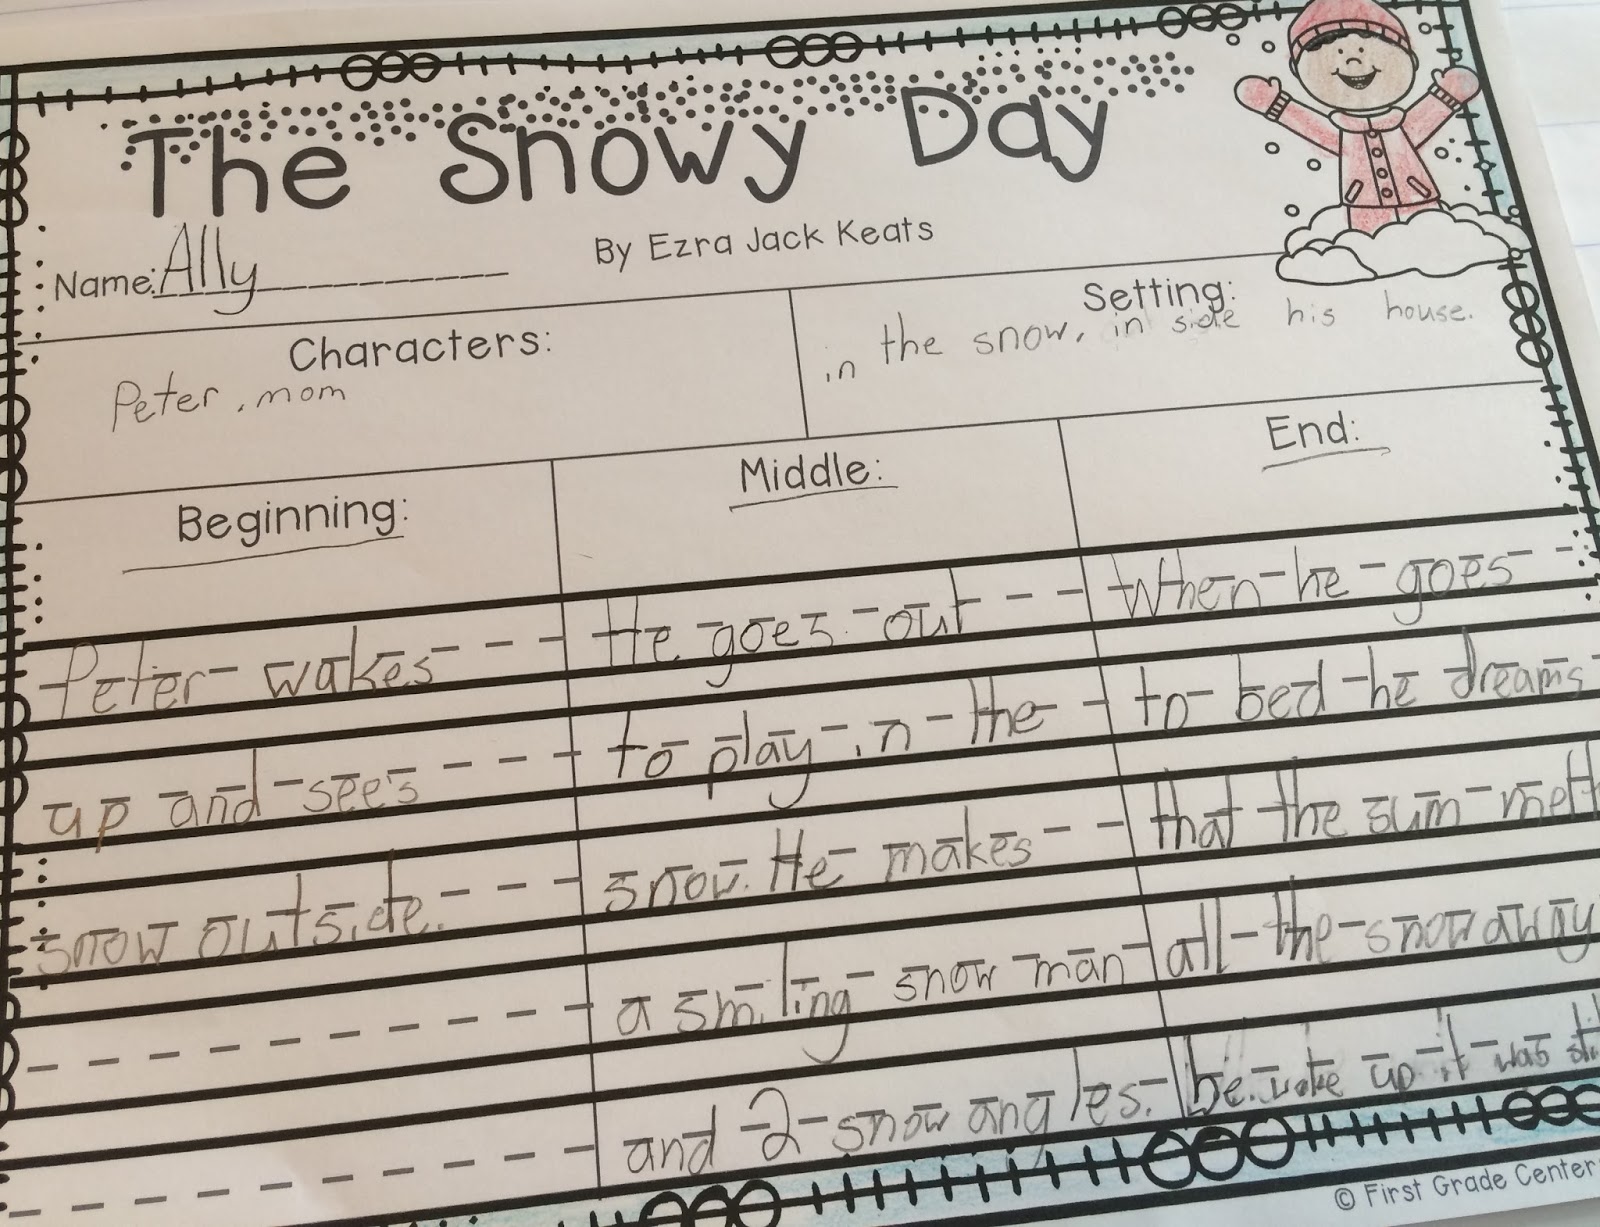 The Snowy Day
Name: Ally
By Ezra Jack Keats
Characters:
Peter, mom
Setting:
in the snow, in side his house.
Beginning:
Peter wakes
up and sees
snow outside.
Middle:
He goes out
to play in the
snow. He makes
a smiling snow man
and 2 snow angles.
End:
When he goes
to bed he dreams
that the sun melt
all the snow away
woke up it was sti
© First Grade Center